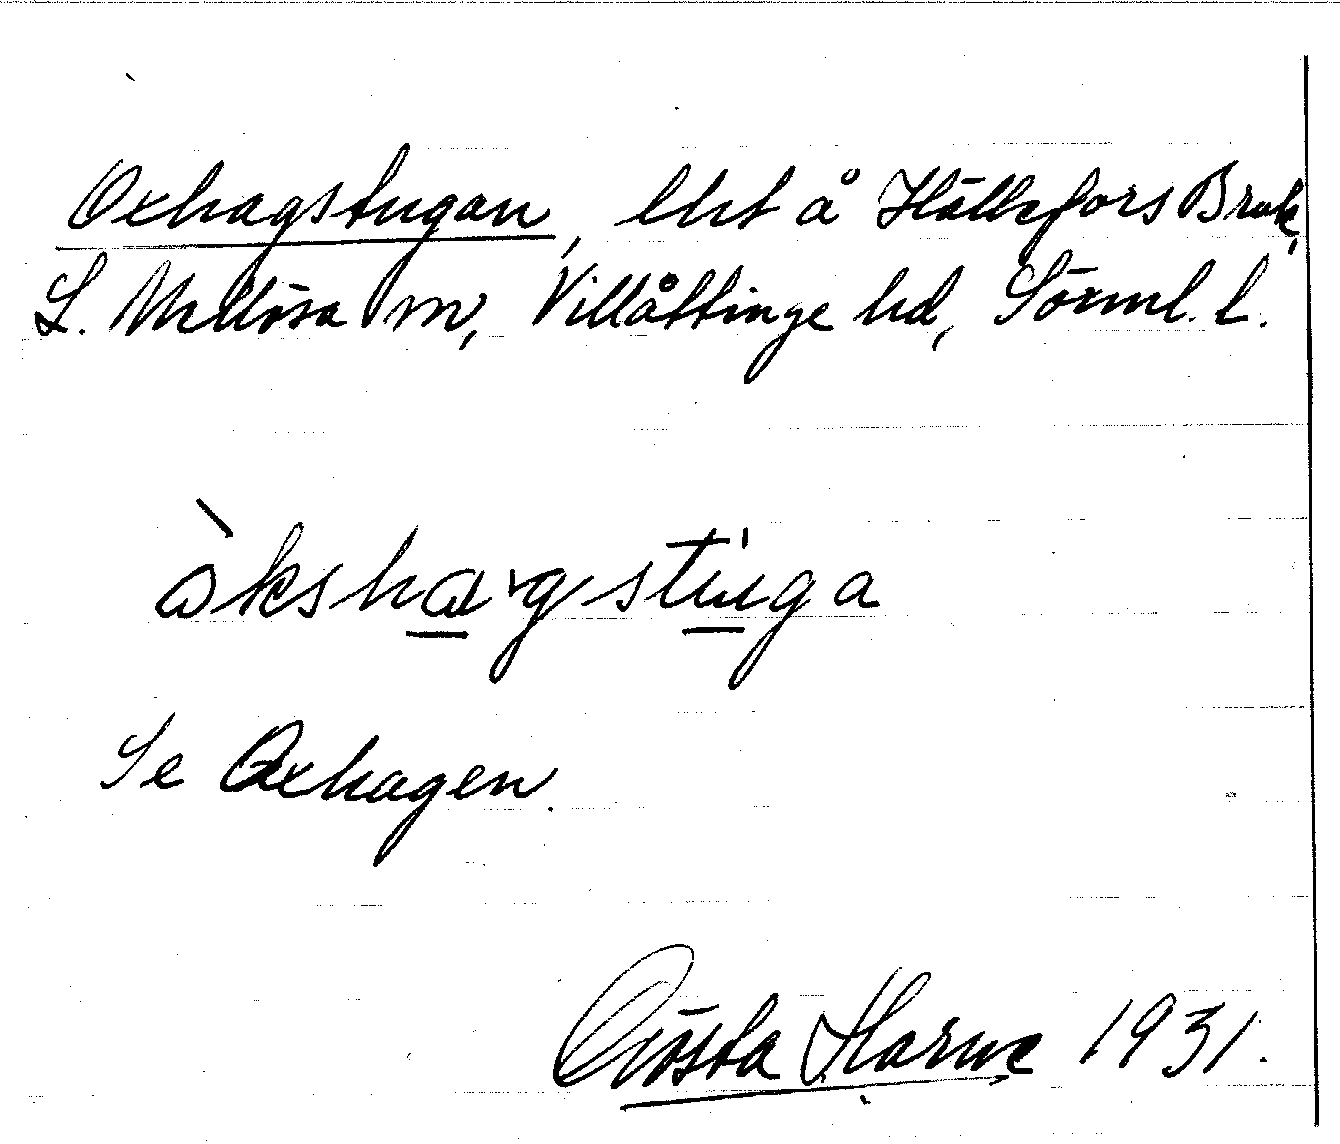 Oxhagstugan, lht å Hällefors Bruk,
L. Mellösa sn, Villåttinge hd, Sörml. l.
òkshɑ̱'gstu̱ga
Se Oxhagen.
Gösta Harwe 1931.